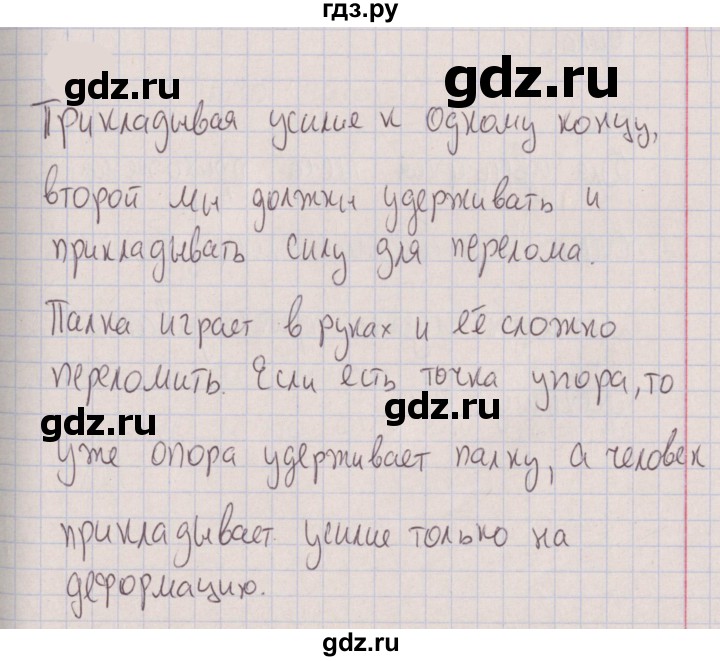 гдз.ру
gdz.ru
gdz.ru
Прикладывая усилие к одному концу,
второй мы должны удерживать и
прикладывать силу для перелома.
gdz.ru
Палка играет в руках и её сложно
переломить. Если есть точка упора, то
gdz.ru
gdz.ru
уже опора удерживает палку, а человек
прикладывает усилие только на
gdz.ru
деформацию.
gdz.ru